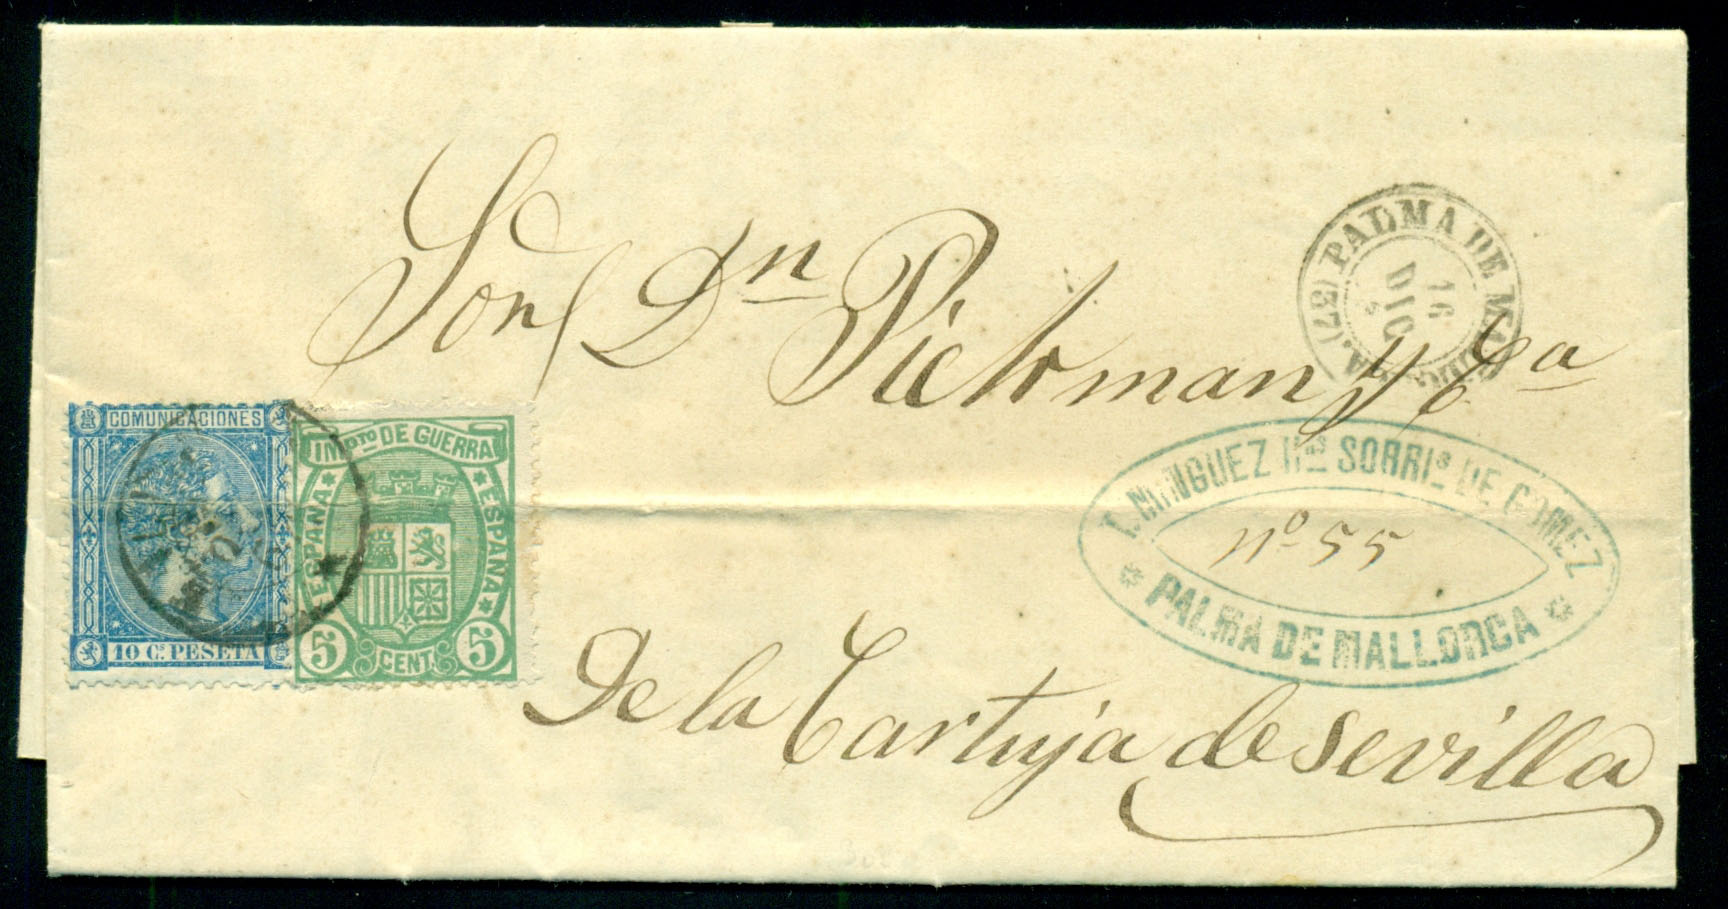 Sor Dn Pickman y Ca
De la Cartuja de Sevilla
PALMA DE MALLORCA. (37)
16
DIC
COMUNICACIONES
10 Cs PESETA
IMPTO DE GUERRA
ESPAÑA
ESPAÑA
5 CENT. 5
HS SORRIS DE GOMEZ
no 55
PALMA DE MALLORCA